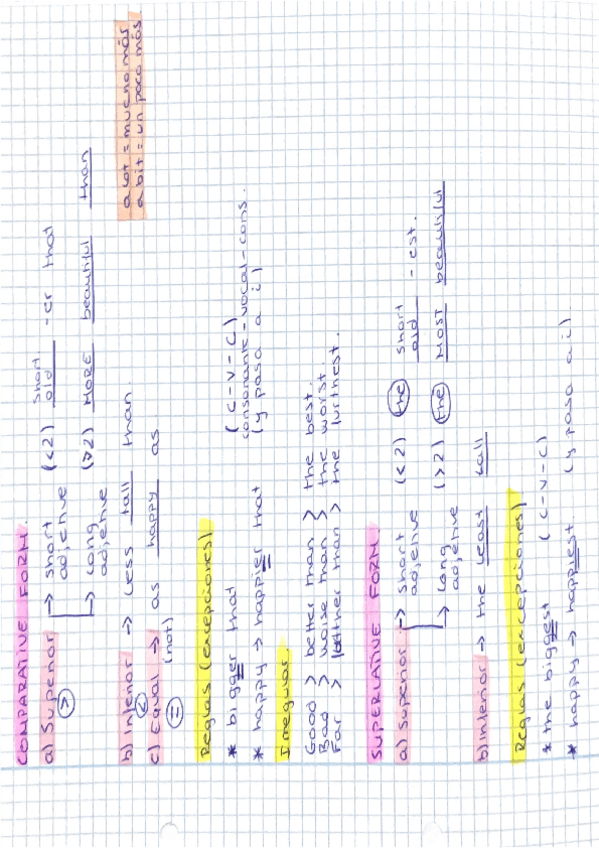 COMPARATIVE FORM.
a) Superior → short adjetive (<2) short old -er that
(>) → Long adjetive (>2) MORE beautiful than
b) Inferior → Less tall than.
(<)
c) Equal → as happy as.
(=) (not)
a lot = mucho más
a bit = un poco más.
Reglas (excepciones)
* bigger that (C-V-C)
consonante-vocal-cons.
* happy → happier that (y pasa a i)
Irregular.
Good > better than > the best.
Bad > worse than > the worst.
Far > further than > the furthest.
SUPERLATIVE FORM.
a) Superior → Short adjetive (<2) the short old -est.
→ Long adjetive (>2) the MOST beautiful
b) Inferior → the Least tall
Reglas (excepciones)
* the biggest (C-V-C)
* happy → happiest. (y pasa a i)